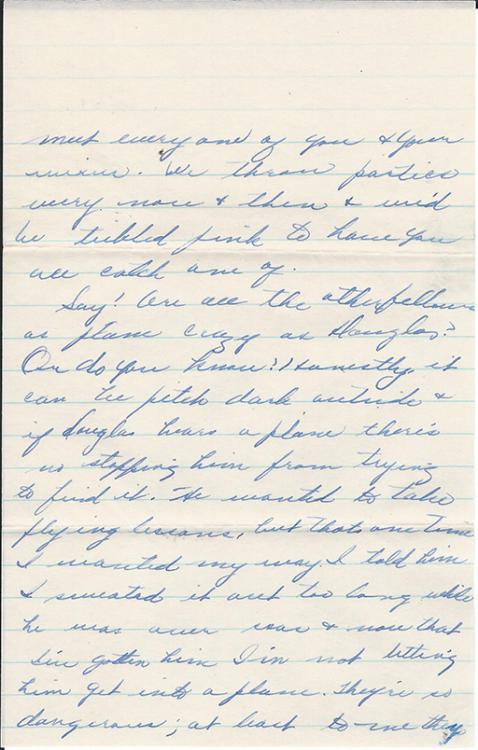 meet every one of you & your
We throw parties
every now & then & we'd
be tickled pink to have you
all catch one of.
Say! Are all the other fellows
as plane crazy as Douglas?
Or do you know? Honestly, it
can be pitch dark outside &
if Douglas hears a plane there's
no stopping him from trying
to find it. He wanted to take
flying lessons, but thats one time
I wanted my way. I told him
I sweated it out too long while
he was over seas & now that
I've gotten him I'm not letting
him get into a plane. They're so
dangerous; at least to me they